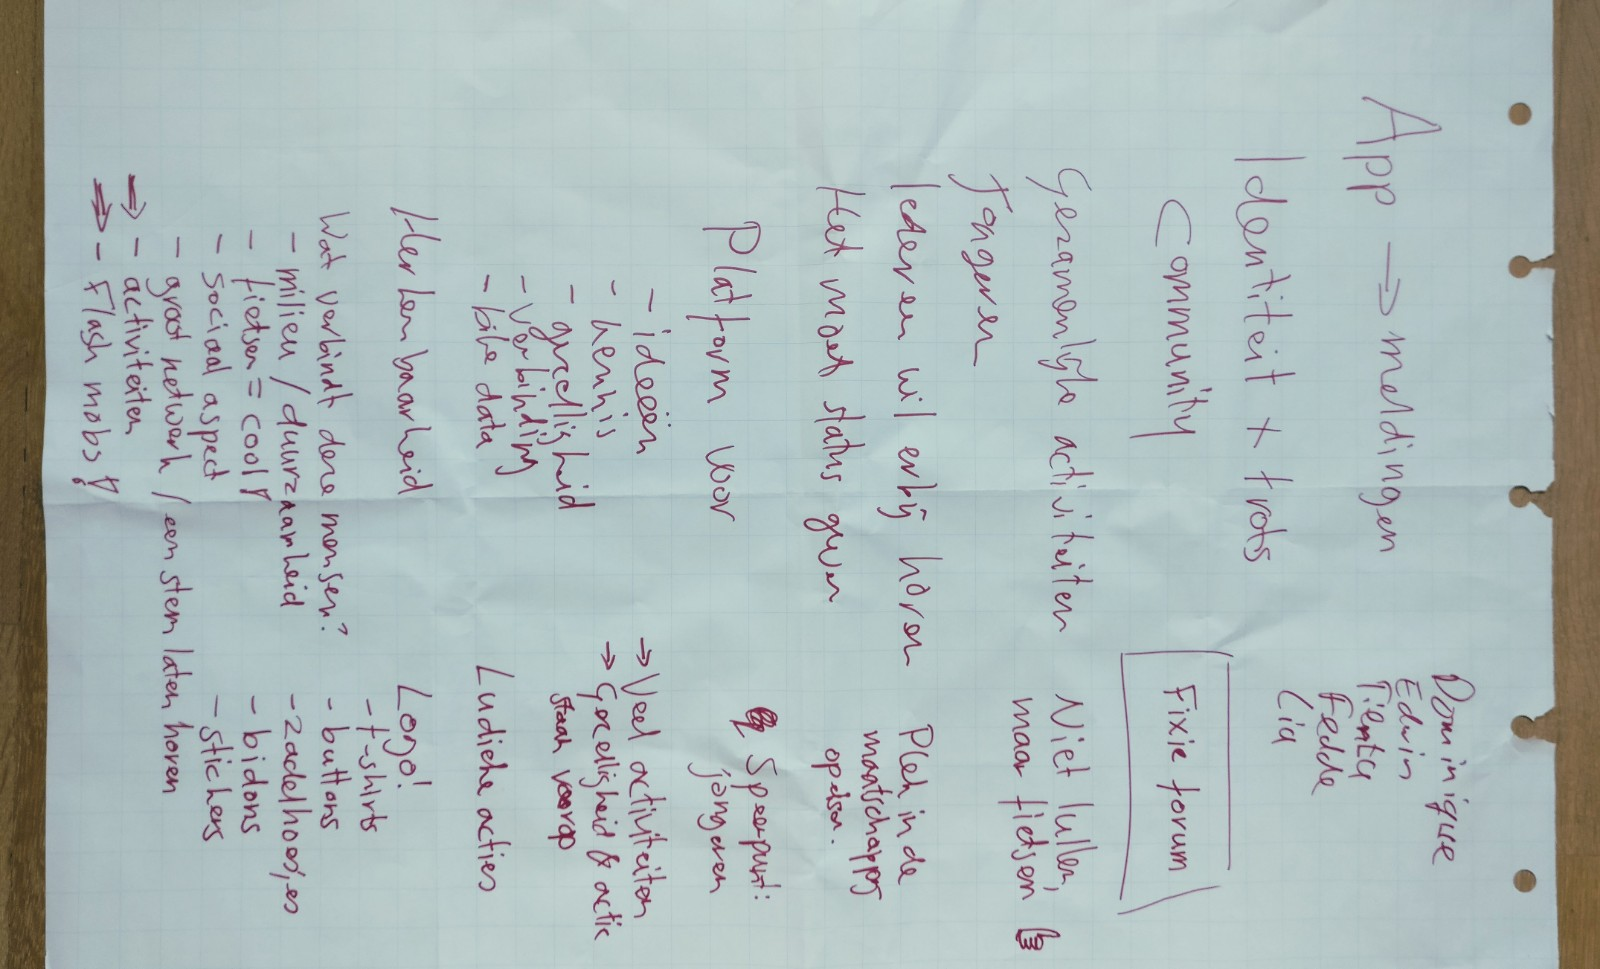 App → meldingen
Identiteit + trots
Community
Gezamenlijke activiteiten
Jongeren
Iedereen wil erbij horen
Het moet status geven
Platform voor
- ideeën
- kennis
- gezelligheid
- verbinding
- bike data
Herkenbaarheid
Wat verbindt deze mensen?
- milieu / duurzaamheid
- fietsen = cool!
- sociaal aspect
- groot netwerk / een stem laten horen
→ - activiteiten
→ - Flash mobs!
Dominique
Edwin
Fedde
Lia
Fixie forum
Niet lullen,
maar fietsen
Plek in de
maatschappij
opeisen.
Speerpunt:
jongeren
→ Veel activiteiten
→ Gezelligheid & actie
staan voorop
Ludieke acties
Logo!
- t-shirts
- buttons
- zadelhoesjes
- bidons
- stickers